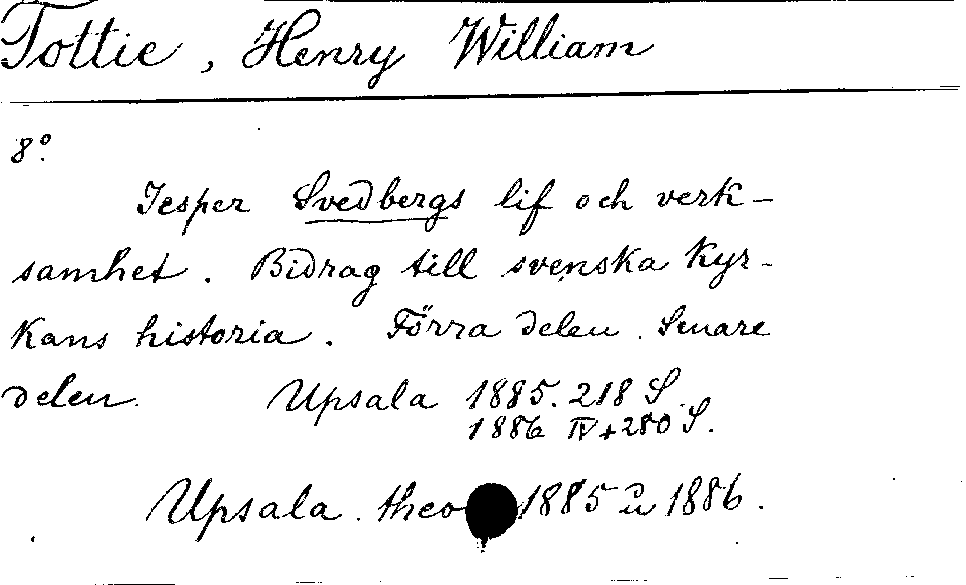 Tottie, Henry William
8°.
Jesper Svedbergs lif och verk-
samhet. Bidrag till svenska Kyr-
kans historia. Förra delen. Senare
delen. Upsala 1885. 218 S.
1886 IV+280 S.
Upsala. theo 1885 u 1886.